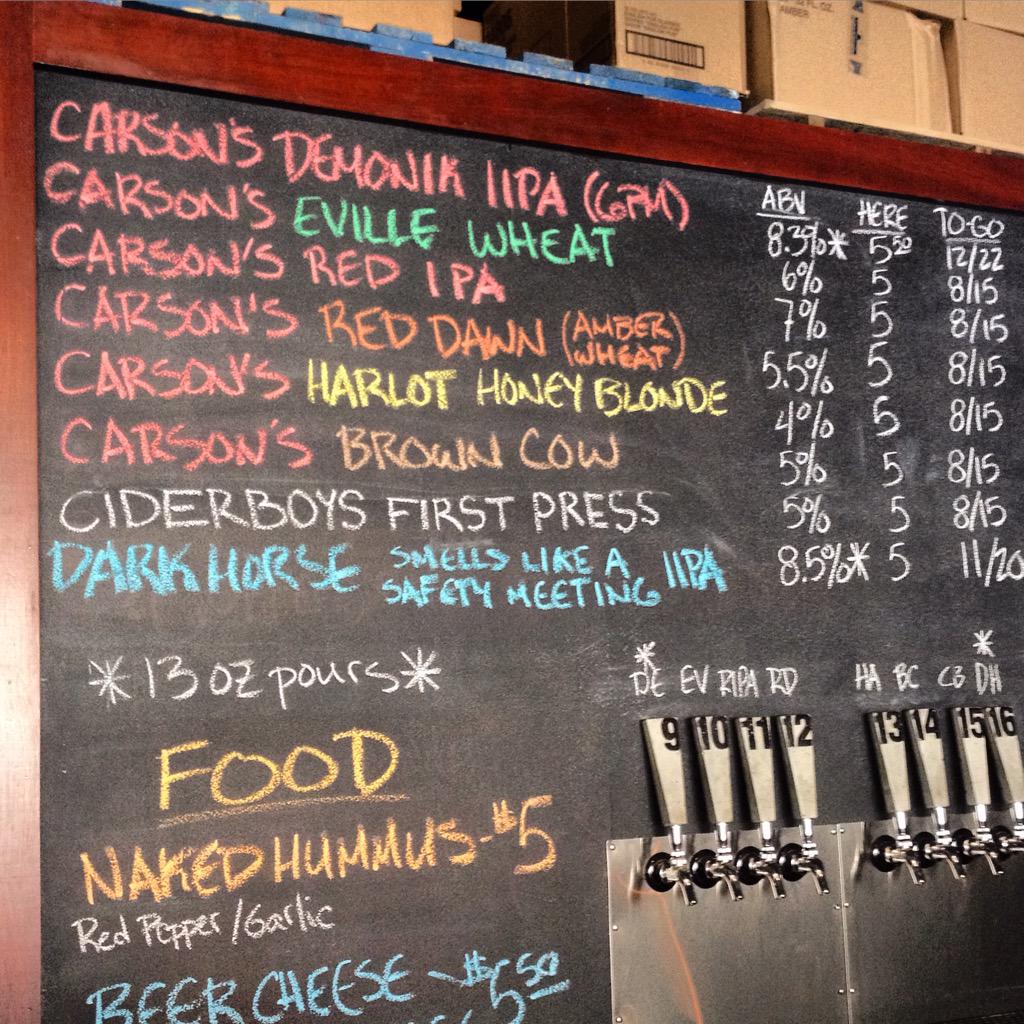 AMBER
ABV HERE TO-GO
CARSON'S DEMONIK IIPA (6PM) 8.3%* 5.50 12/22
CARSON'S EVILLE WHEAT 6% 5 8/15
CARSON'S RED IPA 7% 5 8/15
CARSON'S RED DAWN (AMBER WHEAT) 5.5% 5 8/15
CARSON'S HARLOT HONEY BLONDE 4% 5 8/15
CARSON'S BROWN COW 5% 5 8/15
CIDERBOYS FIRST PRESS 5% 5 8/15
DARK HORSE SMELLS LIKE A SAFETY MEETING IIPA 8.5%* 5 11/20
*13 oz pours*
* *
DE EV RIPA RD HA BC CB DH
9 10 11 12 13 14 15 16
FOOD
NAKED HUMMUS - $5
Red Pepper/Garlic
BEER CHEESE - $5.50